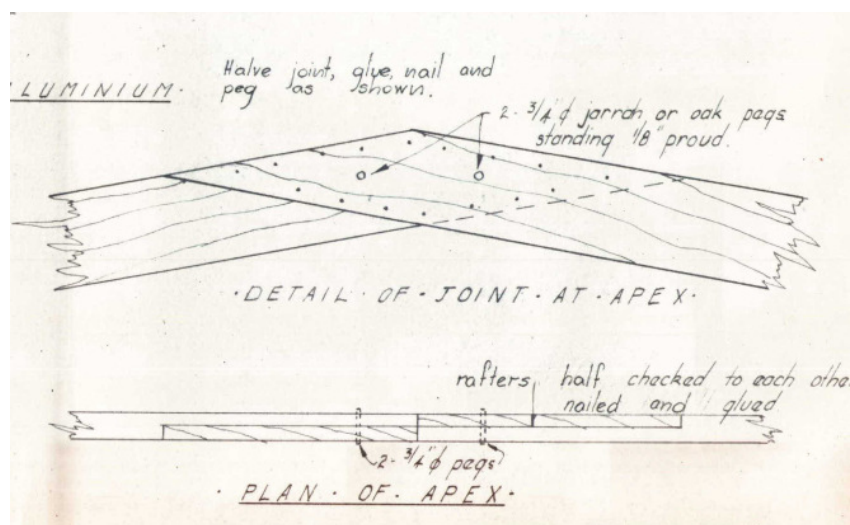 LUMINIUM.
Halve joint, glue, nail and
peg as shown.
2 - 3/4"ϕ jarrah or oak pegs
standing 1/8" proud.
· DETAIL · OF · JOINT · AT · APEX ·
rafters half checked to each othe
nailed and glued
2 - 3/4"ϕ pegs
· PLAN · OF · APEX ·